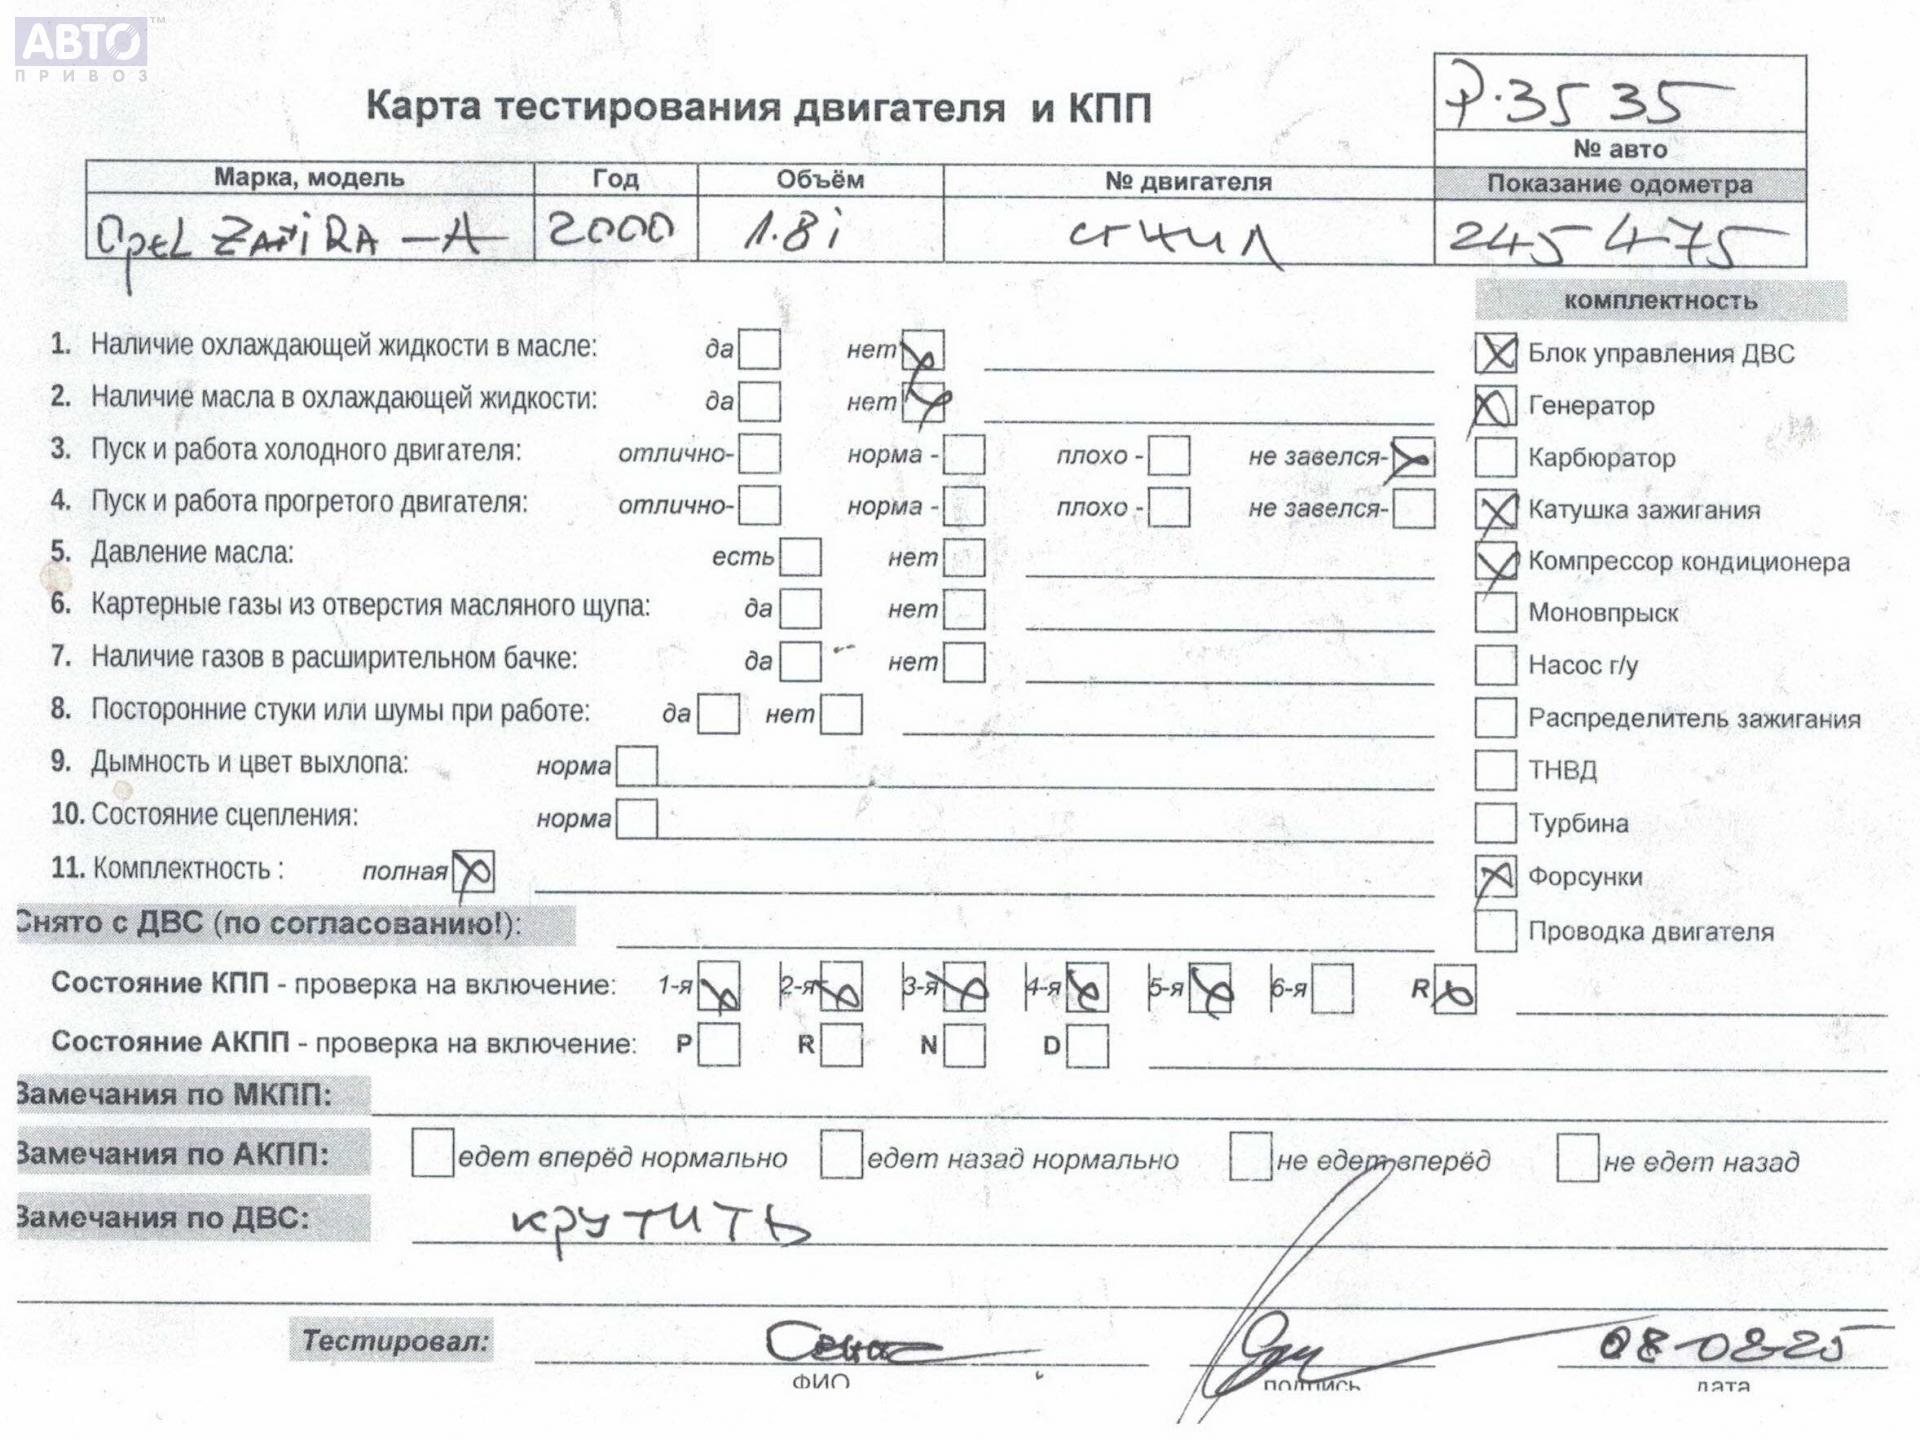 АВТО™
ПРИВОЗ
Карта тестирования двигателя и КПП
Р.3535
№ авто
Марка, модель Год Объём № двигателя Показание одометра
Opel ZAfiRA-A 2000 1.8i сгнил 245475
комплектность
1. Наличие охлаждающей жидкости в масле: да нет Блок управления ДВС
2. Наличие масла в охлаждающей жидкости: да нет Генератор
3. Пуск и работа холодного двигателя: отлично- норма - плохо - не завелся- Карбюратор
4. Пуск и работа прогретого двигателя: отлично- норма - плохо - не завелся- Катушка зажигания
5. Давление масла: есть нет Компрессор кондиционера
6. Картерные газы из отверстия масляного щупа: да нет Моновпрыск
7. Наличие газов в расширительном бачке: да нет Насос г/у
8. Посторонние стуки или шумы при работе: да нет Распределитель зажигания
9. Дымность и цвет выхлопа: норма ТНВД
10. Состояние сцепления: норма Турбина
11. Комплектность : полная Форсунки
Снято с ДВС (по согласованию!): Проводка двигателя
Состояние КПП - проверка на включение: 1-я 2-я 3-я 4-я 5-я 6-я R
Состояние АКПП - проверка на включение: P R N D
Замечания по МКПП:
Замечания по АКПП: едет вперёд нормально едет назад нормально не едет вперёд не едет назад
Замечания по ДВС: крутить
Тестировал: 08-08-25
ФИО подпись дата